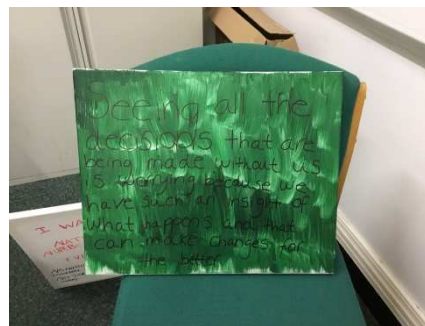 Seeing all the
decisions that are
being made without us
is worrying because we
have such an insight of
what happens and that
can make changes for
the better
I WA
NAT